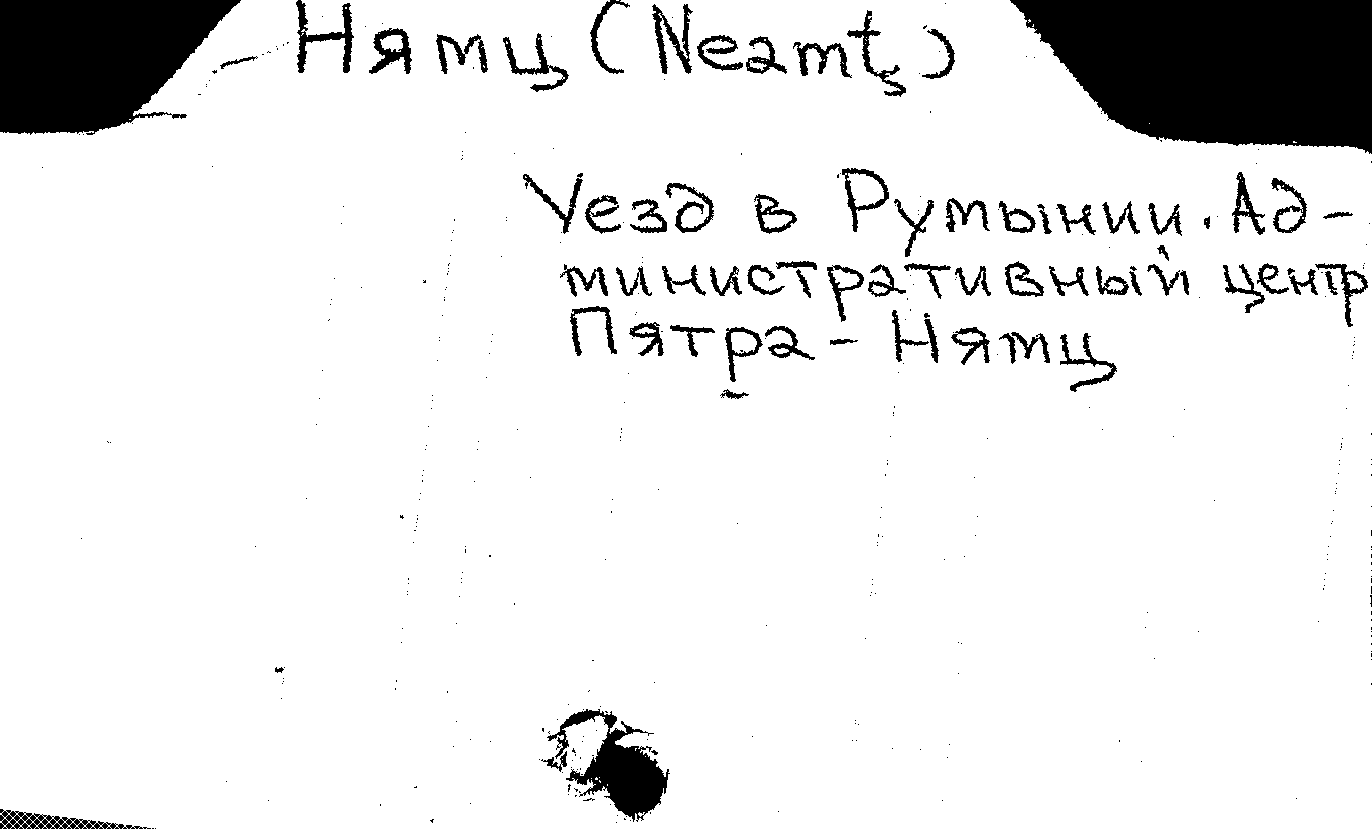 Нямц (Neamţ)
Уезд в Румынии. Ад-
министративный центр
Пятра-Нямц